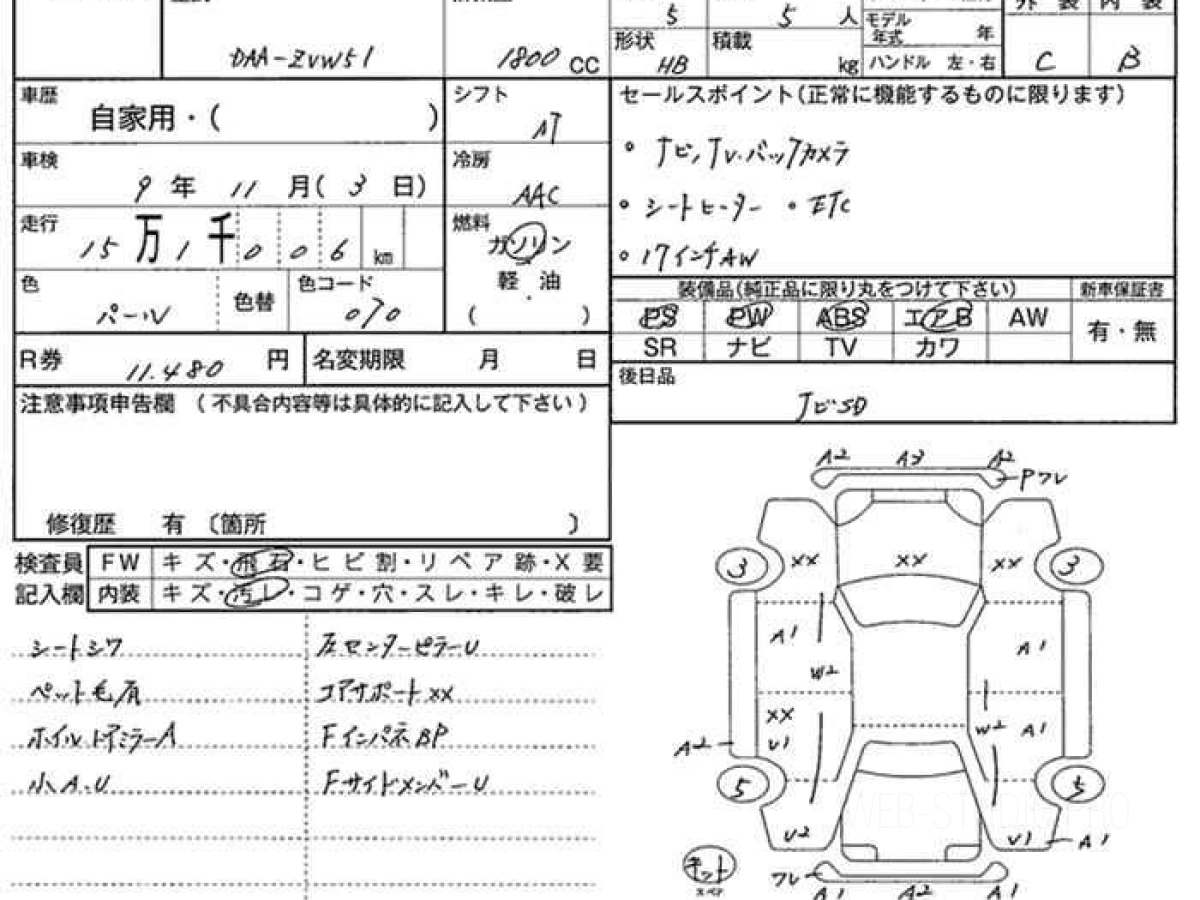 5 5 人 モデル年式 年
DAA-ZVW51 1800 CC
形状 HB 積載 kg ハンドル 左・右 C B
車歴 自家用・( )
シフト AT
車検 9 年 11 月( 3 日)
冷房 AAC
走行 15 万 1 千 0 0 6 km
燃料 ガソリン
軽・油
( )
色 パール 色替 色コード 070
R券 11.480 円 名変期限 月 日
注意事項申告欄 (不具合内容等は具体的に記入して下さい)
修復歴 有 〔箇所 〕
セールスポイント(正常に機能するものに限ります)
・ナビ,TV.バックカメラ
・シートヒーター ・ETC
・17インチAW
装備品(純正品に限り丸をつけて下さい) 新車保証書
PS PW ABS エアB AW 有・無
SR ナビ TV カワ
後日品
ナビSD
検査員 FW キズ・飛石・ヒビ割・リペア跡・X要
記入欄 内装 キズ・汚レ・コゲ・穴・スレ・キレ・破レ
シートシワ 左センターピラーU
ペット毛有 コアサポートXX
ホイルドアミラーA FインパネBP
小A.U FサイドメンバーU
A2 A3 A2
Pフレ
3 XX XX XX 3
A1 A1
W2
XX W2 A1
A2 U1
5 5
WEB-STUDIO.PRO
U2 U1 A1
キット
スペア
フレ
A1 A2 A1